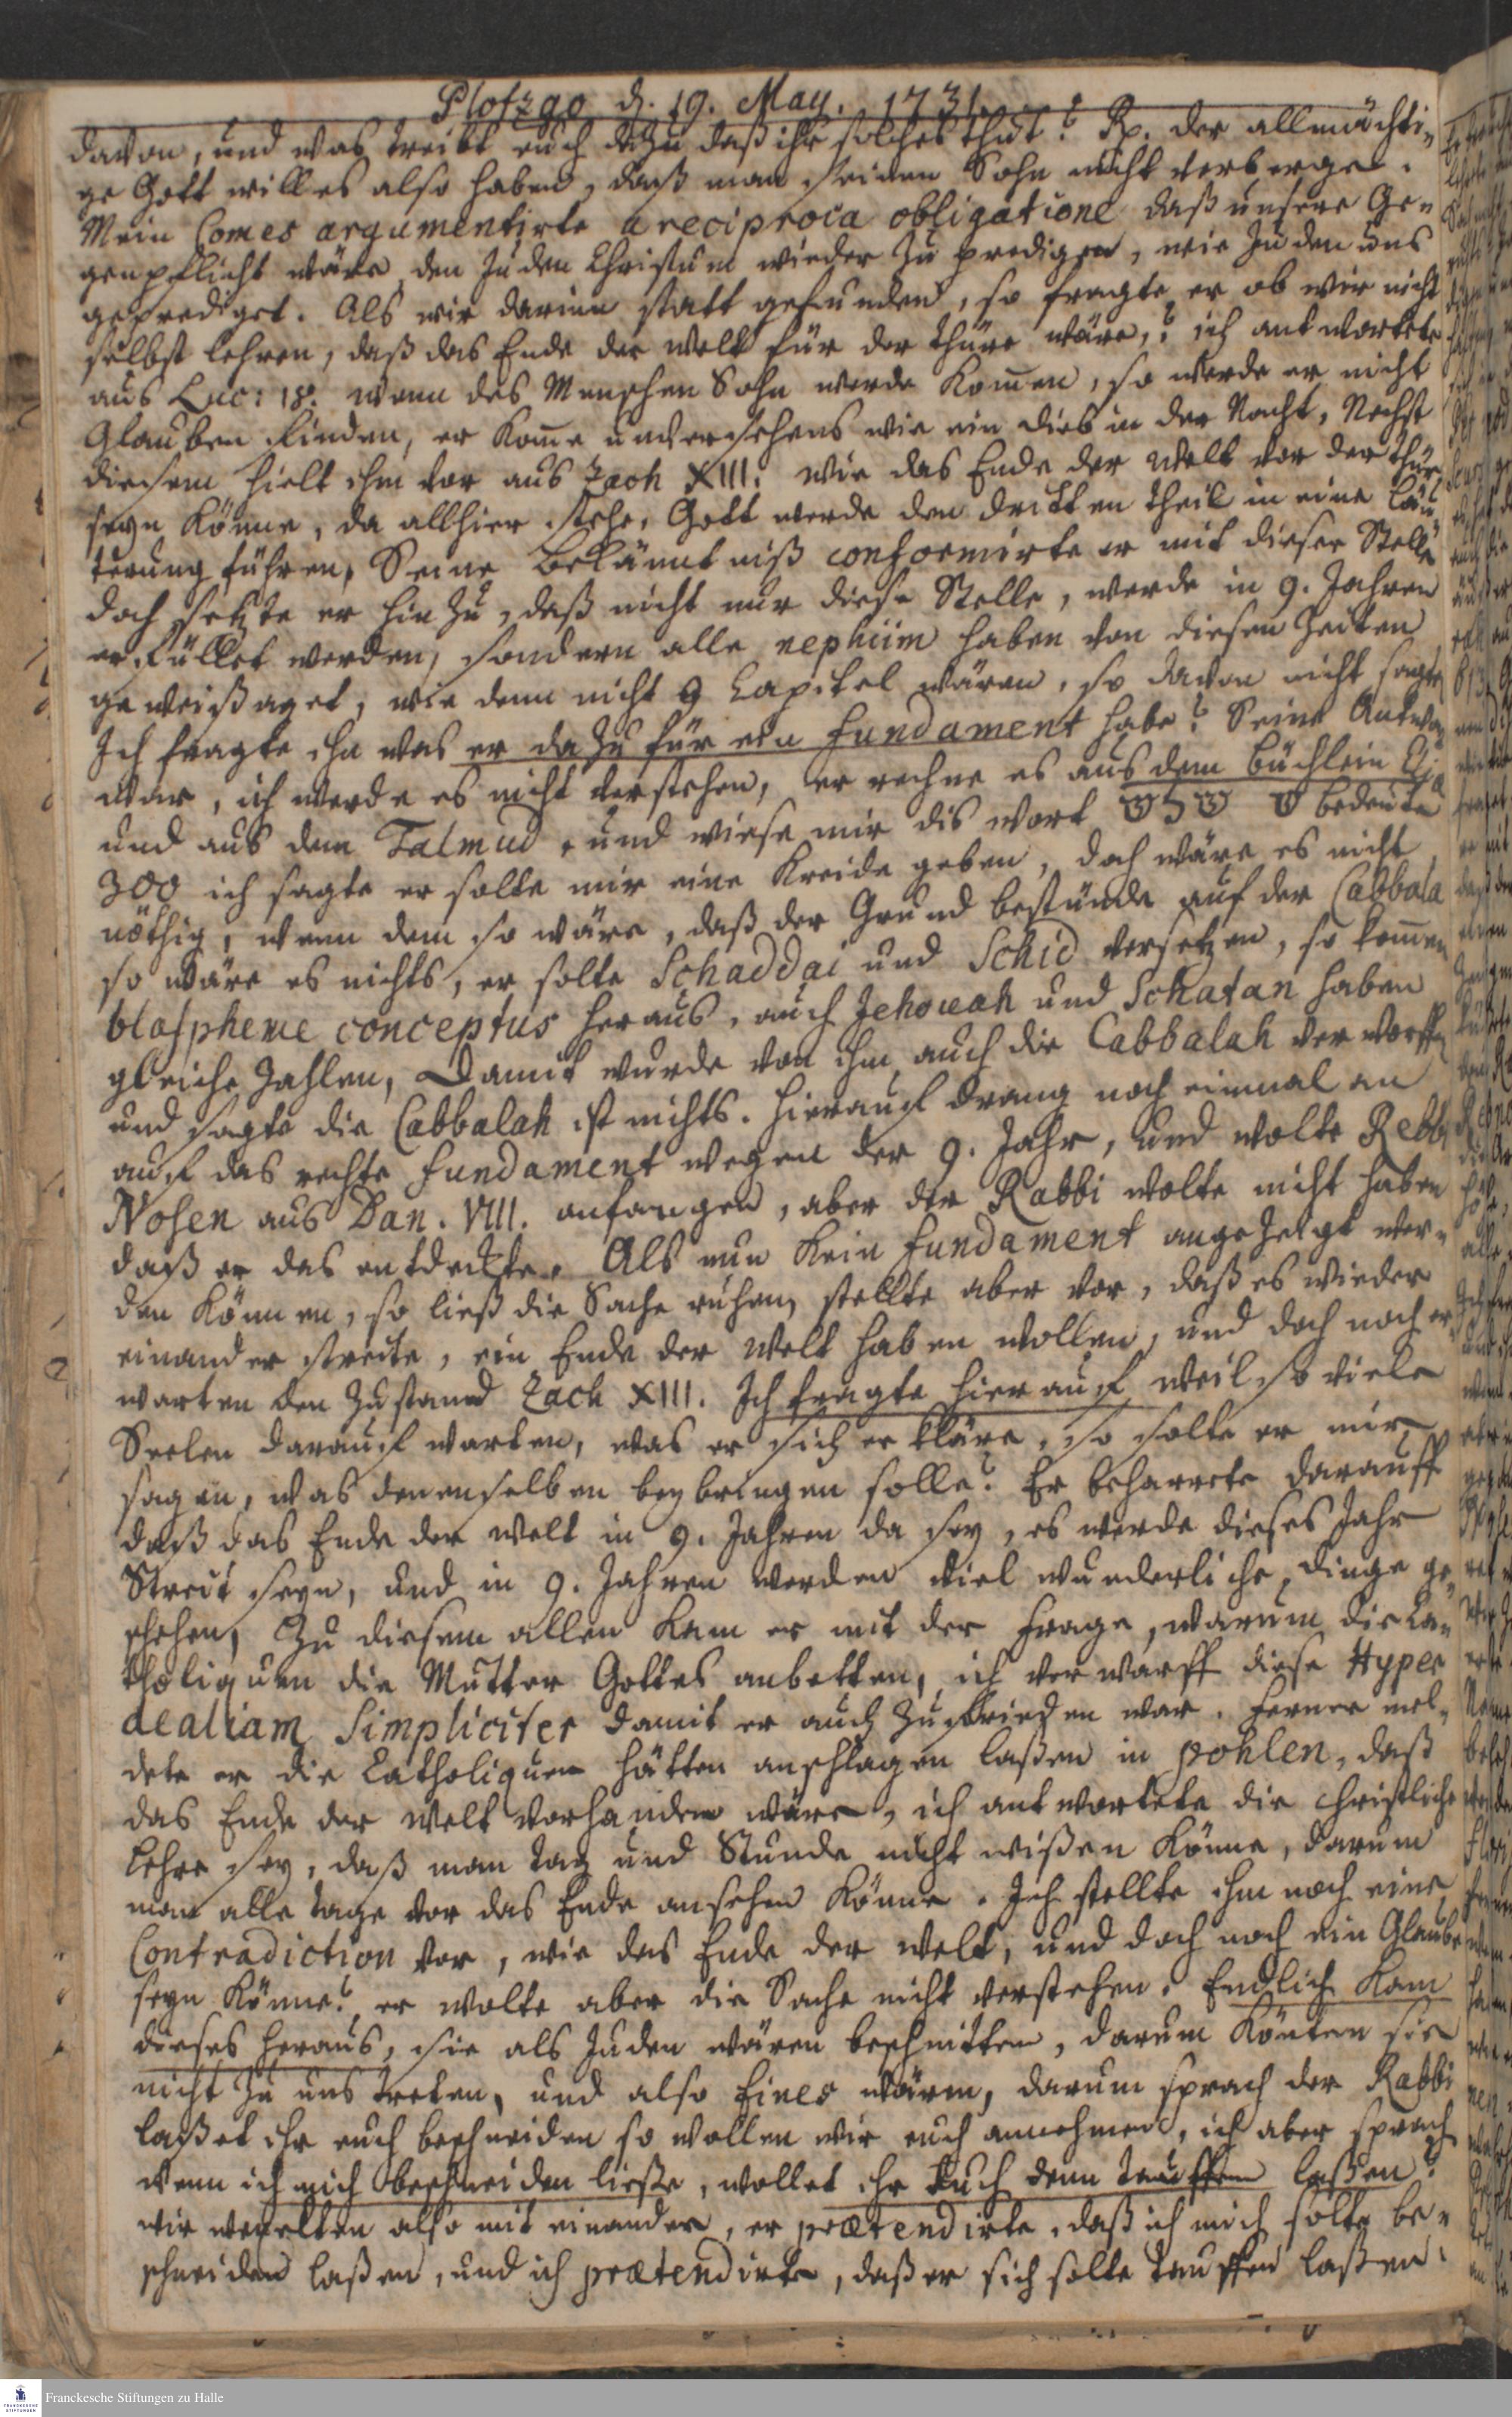 Plotzgo d. 19. May. 1731.
davon, und was treibt euch dazu daß ihr solches thut? Rp. der allmächti-
ge Gott will es also haben, daß man seinen Sohn nicht verberge.
Mein Comes argumentirte a reciproca obligatione daß unsere Ge-
genpflicht wäre den Juden Christum wieder zu predigen, wie Juden uns
geprediget. Als wir darinn statt gefunden, so fragte er ob wir nicht
selbst lehren, daß das Ende der Welt für der Thüre wäre,? ich antwortete
aus Luc: 18. wenn des Menschen Sohn werde kommen, so werde er nicht
Glauben finden, er komme unversehens wie ein dieb in der Nacht, Nechst
diesem hielt ihm vor aus Zach XIII. wie das Ende der Welt vor der Thür
seyn könne, da allhier stehe, Gott werde den dritten Theil in eine Läu-
terung führen, Seine Bekänntniß conformirte er mit dieser Stelle
doch setzte er hinzu, daß nicht nur diese Stelle, werde in 9. Jahren
erfüllet werden, sondern alle nephiim haben von diesen Zeiten
geweißaget, wie denn nicht 9 Capitel wären, so davon nicht sagte
Ich fragte ihn was er dazu für ein fundament habe? Seine Antwort
war, ich werde es nicht verstehen, er rechne es aus dem Büchlein
und aus dem Talmud, und wiese mir dis wort ש bedeute
300 ich sagte er solte mir eine Kreide geben, doch wäre es nicht
nöthig, wenn dem so wäre, daß der Grund bestünde auf der Cabbala
so wäre es nichts, er solte Schaddai und Schid versetzen, so kommen
blaspheme conceptus heraus, auch Jehovah und Schatan haben
gleiche Zahlen, Damit wurde von ihm auch die Cabbalah verworffen
und sagte die Cabbalah ist nichts. Hierauf drang noch einmal an
auf das rechte fundament wegen der 9. Jahr, und wolte Rebbi
Nosen aus Dan. VIII. anfangen, aber der Rabbi wolte nicht haben
daß er das entdeckte. Als nun kein fundament angezeigt wer-
den können, so ließ die Sache ruhen, stellte aber vor, daß es wieder
einander streite, ein Ende der Welt haben wollen, und doch noch er-
warten den Zustand Zach XIII. Ich fragte hierauf, weil so viele
Seelen darauf warten, was er sich erkläre, so solte er mir
sagen, was denenselben beybringen solle? Er beharrete darauff
daß das Ende der Welt in 9. Jahren da sey, es werde dieses Jahr
Streit seyn, und in 9. Jahren werden viel wunderliche Dinge ge-
schehen, Zu diesem allen kam er mit der Frage, warum die Ca-
tholiquen die Mutter Gottes anbetten, ich verwarff diese Hyper
dealiam Simpliciter damit er auch zufrieden war. Ferner mel-
dete er die Catholiquen hätten anschlagen laßen in Pohlen, daß
das Ende der Welt vorhanden wäre, ich antwortete die christliche
Lehre sey, daß man Tag und Stunde nicht wißen könne, darum
man alle Tage vor das Ende ansehen könne. Ich stellte ihm noch eine
Contradiction vor, wie das Ende der Welt, und doch noch ein Glaube
seyn könne? er wolte aber die Sache nicht verstehen. Endlich kam
dieses heraus, sie als Juden wären beschnitten, darum könten sie
nicht zu uns treten, und also Eines wären, darum sprach der Rabbi
laßet ihr euch beschneiden so wollen wir euch annehmen, ich aber sprach
wenn ich mich beschneiden ließe, wollet ihr Euch denn tauffen laßen?
wir also mit einander, er prætendirte, daß ich mich solte be-
schneiden laßen, und ich prætendirte, daß er sich solte tauffen laßen.
Franckesche Stiftungen zu Halle